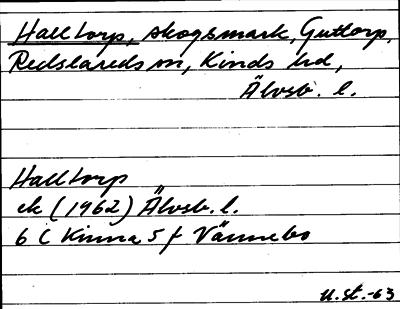 Halltorp, skogsmark, Guttorp,
Redslareds sn, Kinds hd,
Älvsb. l.
Halltorp
ek (1962) Älvsb. l.
6 C Kinna 5 f Vännebo
U.St.-63